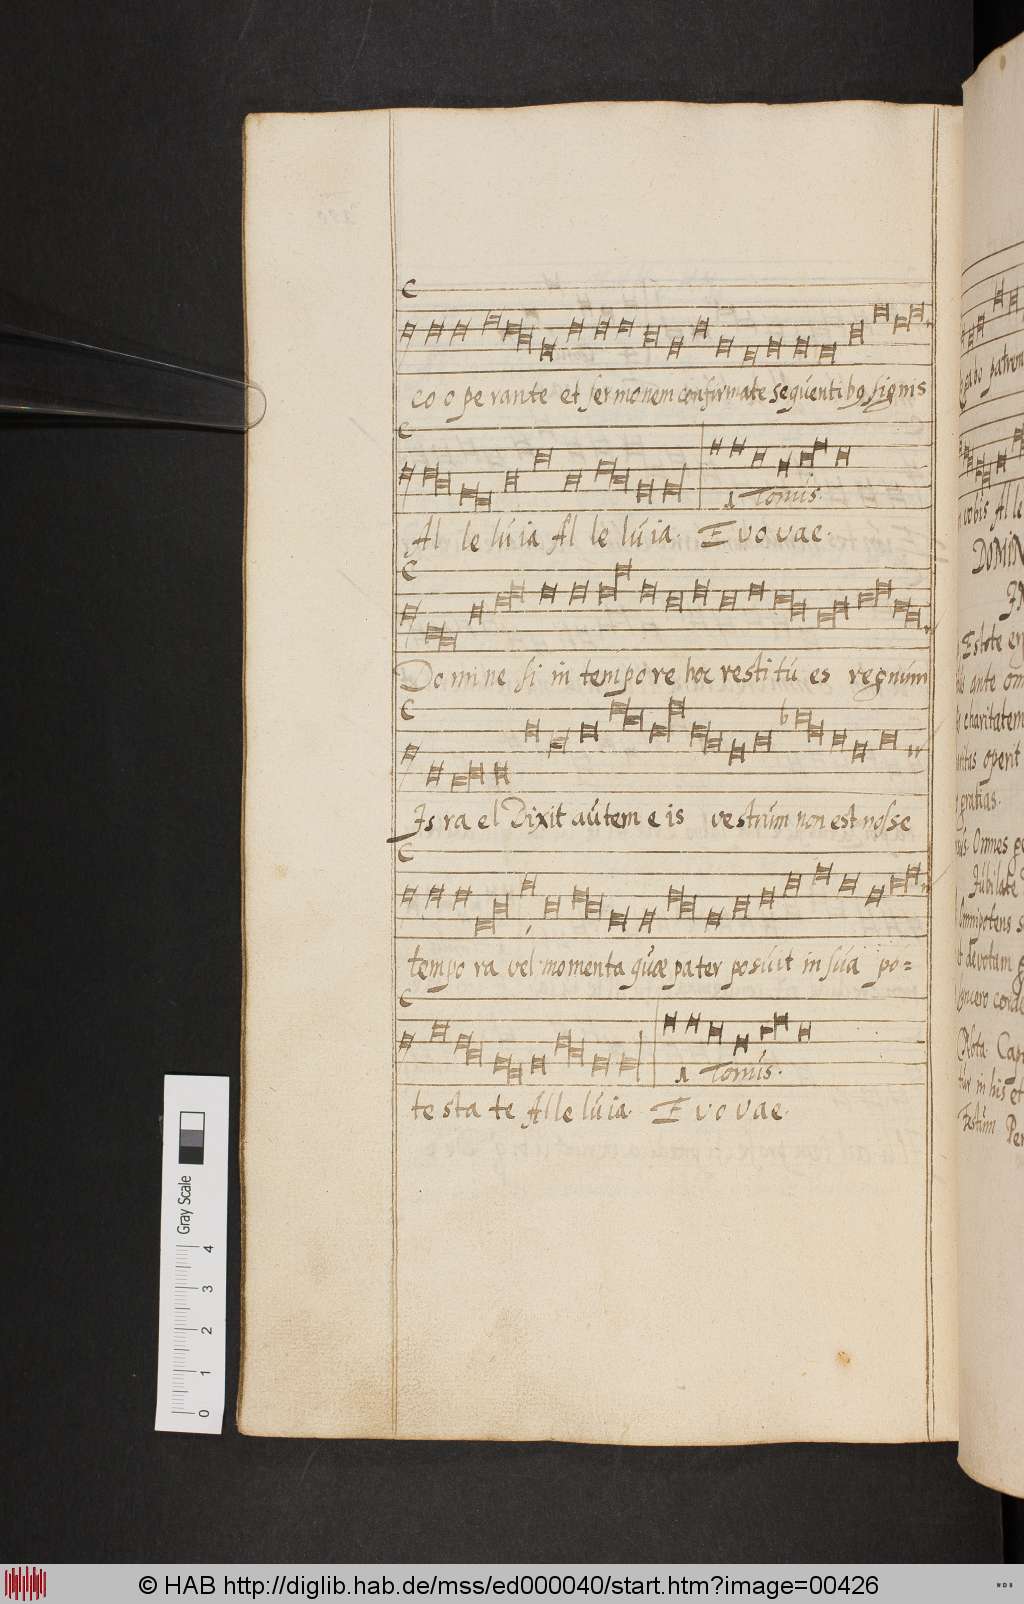 co o pe rante et ser monem confirmate sequenti bq signis
1 Tonus.
Al le lu ia Al le lu ia. E vo vae.
Do mi ne si in tempo re hoc resti tu es regnum
Is ra el Dixit autem e is vestrum non est nosse
tempo ra vel momenta quæ pa ter posuit in sua po=
1 Tonus.
te sta te Alle lu ia. E vo vae.
patrem
vobis Al le
DOMIN
Estote
ante om
charitatem
operit
gratias.
Omnes ge
Jubilate
Omnipotens
devotam
sincero
Nota. Cap
in his et
Festum Pe
Gray Scale
4
3
2
1
0
© HAB http://diglib.hab.de/mss/ed000040/start.htm?image=00426